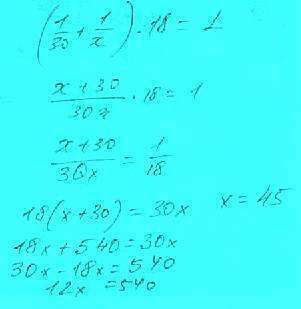 (1/30 + 1/x) · 18 = 1
x+30/30x · 18 = 1
x+30/30x = 1/18
18(x+30) = 30x x = 45
18x + 540 = 30x
30x - 18x = 540
12x = 540